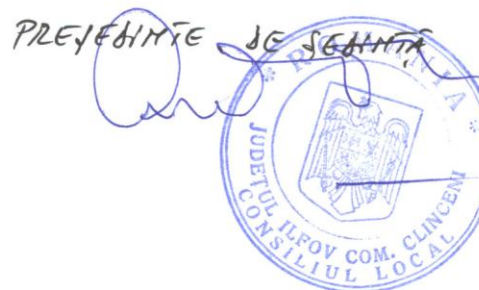 PREȘEDINTE DE ȘEDINȚĂ
* ROMÂNIA *
JUDEȚUL ILFOV COM. CLINCENI
CONSILIUL LOCAL